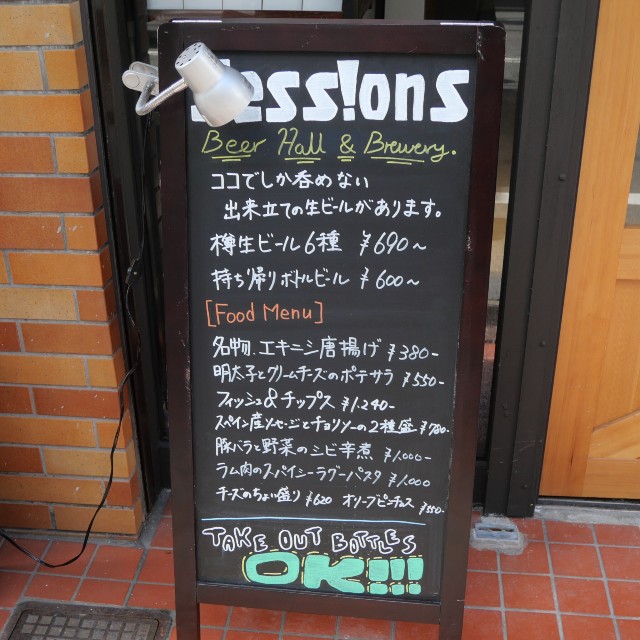 sess!ons
Beer Hall & Brewery.
ココでしか呑めない
出来立ての生ビールがあります。
樽生ビール6種 ¥690〜
持ち帰りボトルビール ¥600〜
[Food Menu]
名物、エキニシ唐揚げ ¥380-
明太子とクリームチーズのポテサラ ¥550-
フィッシュ&チップス ¥1,240-
スペイン産ソーセージとチョリソーの2種盛 ¥780-
豚バラと野菜のシビ辛煮 ¥1,000-
ラム肉のスパイシーラグーパスタ ¥1,000
チーズのちょい盛り ¥620 オリーブピンチョス ¥550-
TAKE OUT BOTTLES
OK!!!